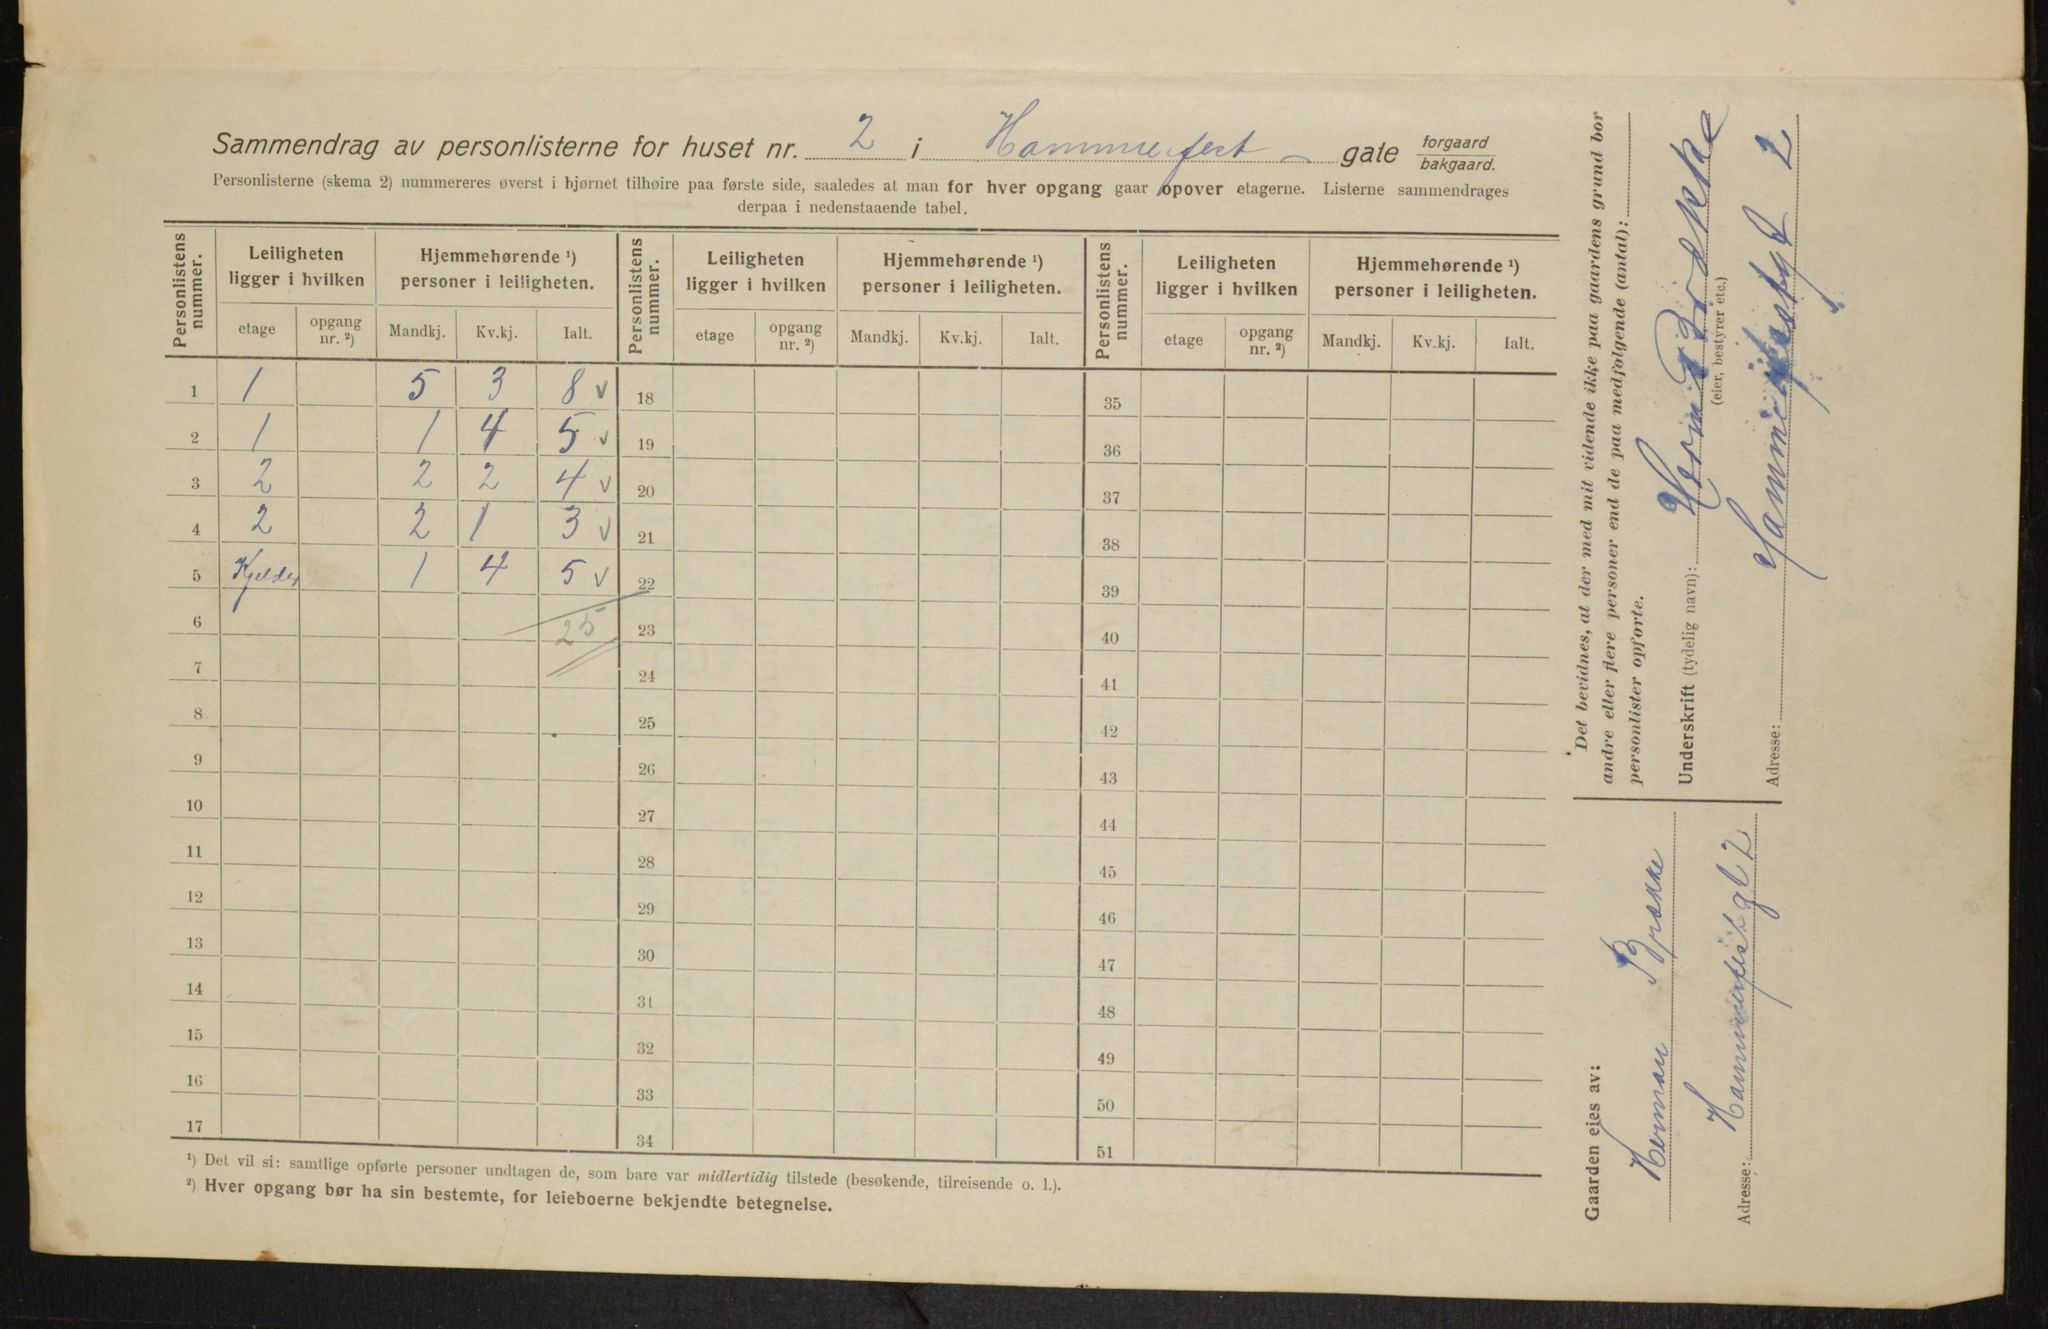 Sammendrag av personlisterne for huset nr. 2 i Hammerfest gate forgaard bakgaard.
Personlisterne (skema 2) nummereres øverst i hjørnet tilhøire paa første side, saaledes at man for hver opgang gaar opover etagerne. Listerne sammendrages
derpaa i nedenstaaende tabel.
Personlistens nummer. Leiligheten ligger i hvilken Hjemmehørende ¹) personer i leiligheten. Personlistens nummer. Leiligheten ligger i hvilken Hjemmehørende ¹) personer i leiligheten. Personlistens nummer. Leiligheten ligger i hvilken Hjemmehørende ¹) personer i leiligheten.
etage opgang nr. ²) Mandkj. Kv.kj. Ialt. etage opgang nr. ²) Mandkj. Kv.kj. Ialt. etage opgang nr. ²) Mandkj. Kv.kj. Ialt.
1 1 5 3 8 v 18 35
2 1 1 4 5 v 19 36
3 2 2 2 4 v 20 37
4 2 2 1 3 v 21 38
5 Kjelder 1 4 5 v 22 39
6 25 23 40
7 24 41
8 25 42
9 26 43
10 27 44
11 28 45
12 29 46
13 30 47
14 31 48
15 32 49
16 33 50
17 34 51
¹) Det vil si: samtlige opførte personer undtagen de, som bare var midlertidig tilstede (besøkende, tilreisende o. l.).
²) Hver opgang bør ha sin bestemte, for leieboerne bekjendte betegnelse.
Det bevidnes, at der med mit vidende ikke paa gaardens grund bor
andre eller flere personer end de paa medfølgende (antal):
personlister opførte.
Underskrift (tydelig navn): Herman Brække
(eier, bestyrer etc.)
Adresse: Hammerfestgt 2
Gaarden eies av:
Herman Brække
Adresse: Hammerfestgt 2